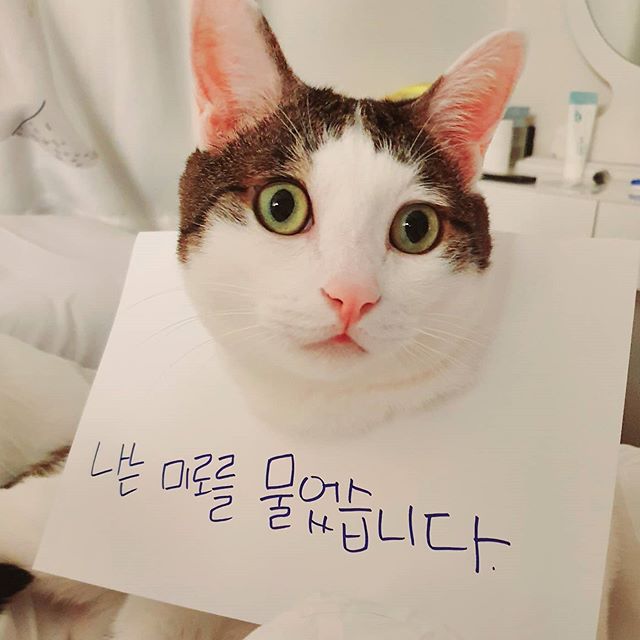 나는 미로를 물었습니다.